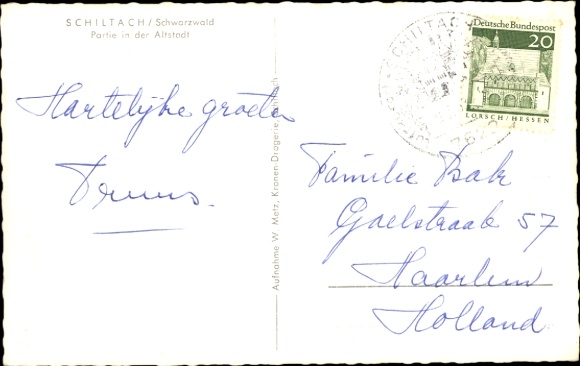 SCHILTACH / Schwarzwald
Partie in der Altstadt
Hartelijke groeten
Truus.
Aufnahme W. Metz, Kronen-Drogerie, Schiltach
SCHILTACH
Deutsche Bundespost
20
LORSCH/HESSEN
Familie Bak
Gaelstraat 57
Haarlem
Holland.